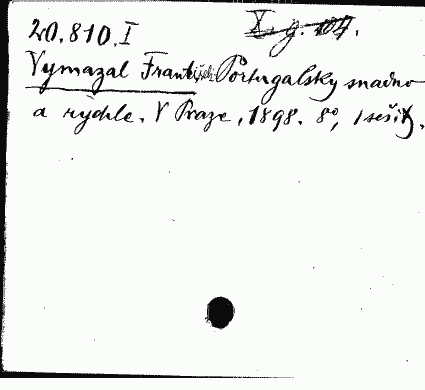 20.810.I X. g. 104.
Vymazal František Portugalsky snadno
a rychle. V Praze, 1898. 8°, 1 sešit.